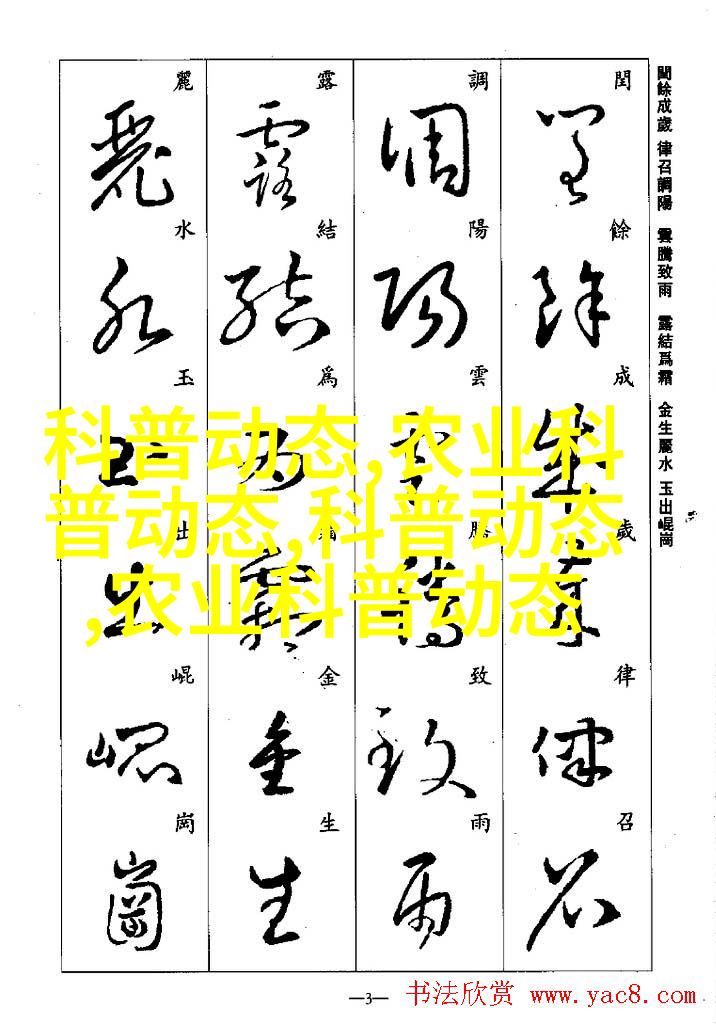 閏餘成歲 律召調陽 雲騰致雨 露結爲霜 金生麗水 玉出崐崗
閏餘成歲律召
調陽雲騰致雨
露結爲霜金生
麗水玉出崐崗
科普动态,农业科
普动态,科普动态
,农业科普动态
—3—
书法欣赏 www.yac8.com